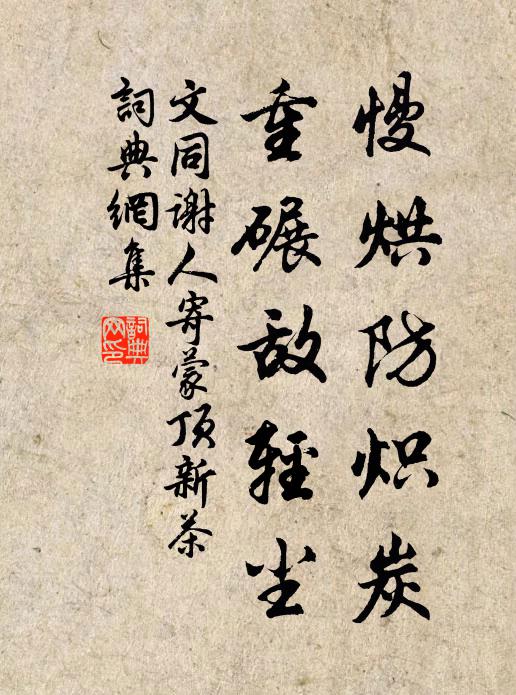 慢烘防炽炭
重碾敌轻尘
文同谢人寄蒙顶新茶
詞典網集
詞典网印